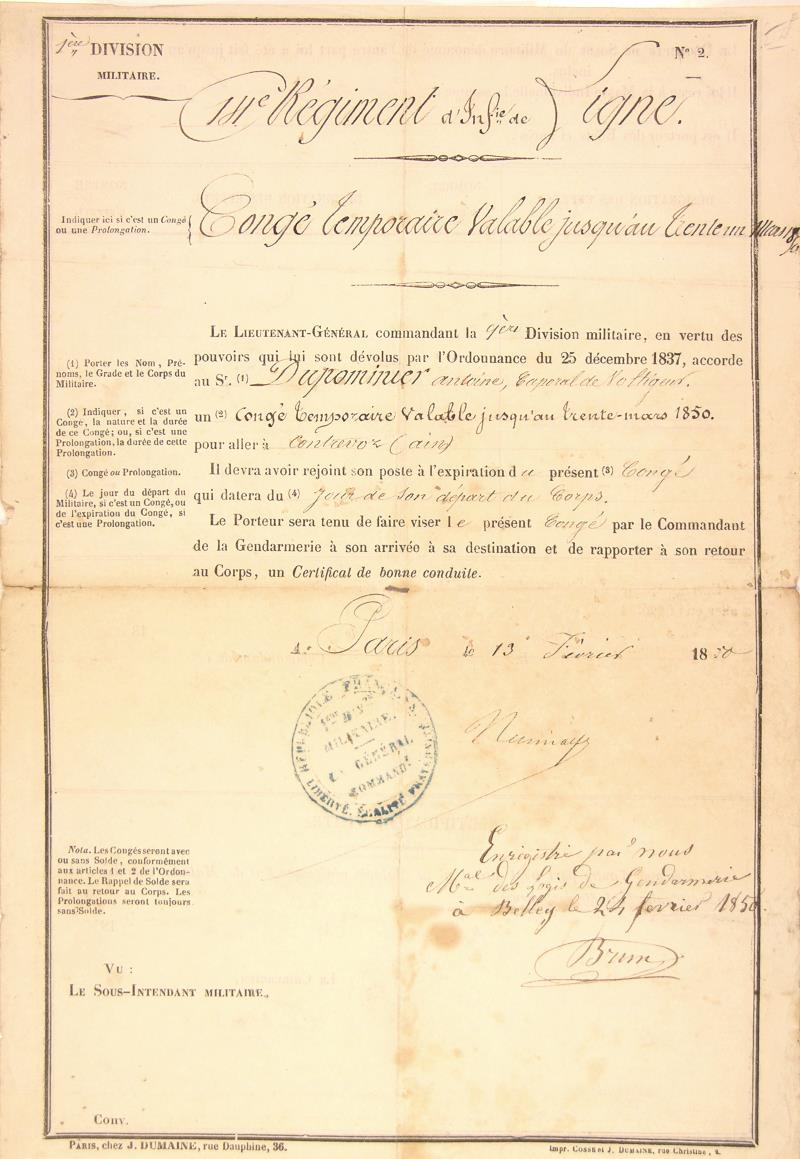 1ère DIVISION
MILITAIRE.
N° 2.
Régiment d'Infie de Ligne.
Indiquer ici si c'est un Congé
ou une Prolongation.
Congé temporaire Valable jusqu'au trente un Mars
LE LIEUTENANT-GÉNÉRAL commandant la 1ère Division militaire, en vertu des
pouvoirs qui lui sont dévolus par l'Ordonnance du 25 décembre 1837, accorde
au Sr. (1) Dupominier antoine, Caporal de Voltigeur.
un (2) Congé temporaire Valable jusqu'au trente-mars 1850.
pour aller à Contrevoz (ain)
Il devra avoir rejoint son poste à l'expiration du présent (3) Congé
qui datera du (4) jour de son départ du Corps.
Le Porteur sera tenu de faire viser le présent Congé par le Commandant
de la Gendarmerie à son arrivée à sa destination et de rapporter à son retour
au Corps, un Certificat de bonne conduite.
(1) Porter les Nom, Pré-
noms, le Grade et le Corps du
Militaire.
(2) Indiquer, si c'est un
Congé, la nature et la durée
de ce Congé; ou, si c'est une
Prolongation, la durée de cette
Prolongation.
(3) Congé ou Prolongation.
(4) Le jour du départ du
Militaire, si c'est un Congé, ou
de l'expiration du Congé, si
c'est une Prolongation.
A Paris le 13 Février 1850
RÉPUBLIQUE FRANÇAISE
1ère DIVon
MILITAIRE.
LE GÉNÉRAL
COMMANDt
LIBERTÉ, ÉGALITÉ, FRATERNITÉ
Enregistré par nous
Mal des Logis de Gendarmerie
à Belley le 24 fevrier 1850.
Brun
Nota. Les Congés seront avec
ou sans Solde, conformément
aux articles 1 et 2 de l'Ordon-
nance. Le Rappel de Solde sera
fait au retour au Corps. Les
Prolongations seront toujours
sans Solde.
VU :
LE SOUS-INTENDANT MILITAIRE,
CONV.
PARIS, chez J. DUMAINE, rue Dauphine, 36.
Impr. COSSE et J. DUMAINE, rue Christine, 2.